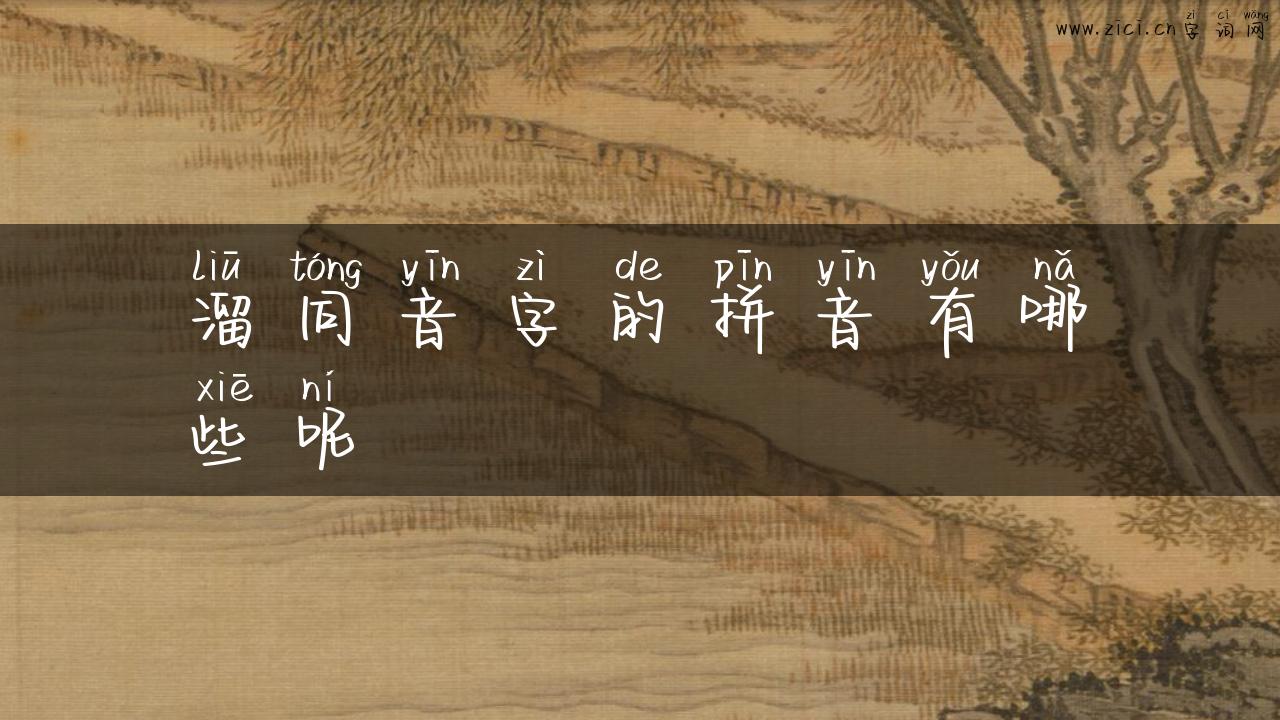 zì cí wǎng
www.zici.cn字词网
liū tóng yīn zì de pīn yīn yǒu nǎ
溜同音字的拼音有哪
xiē ní
些呢